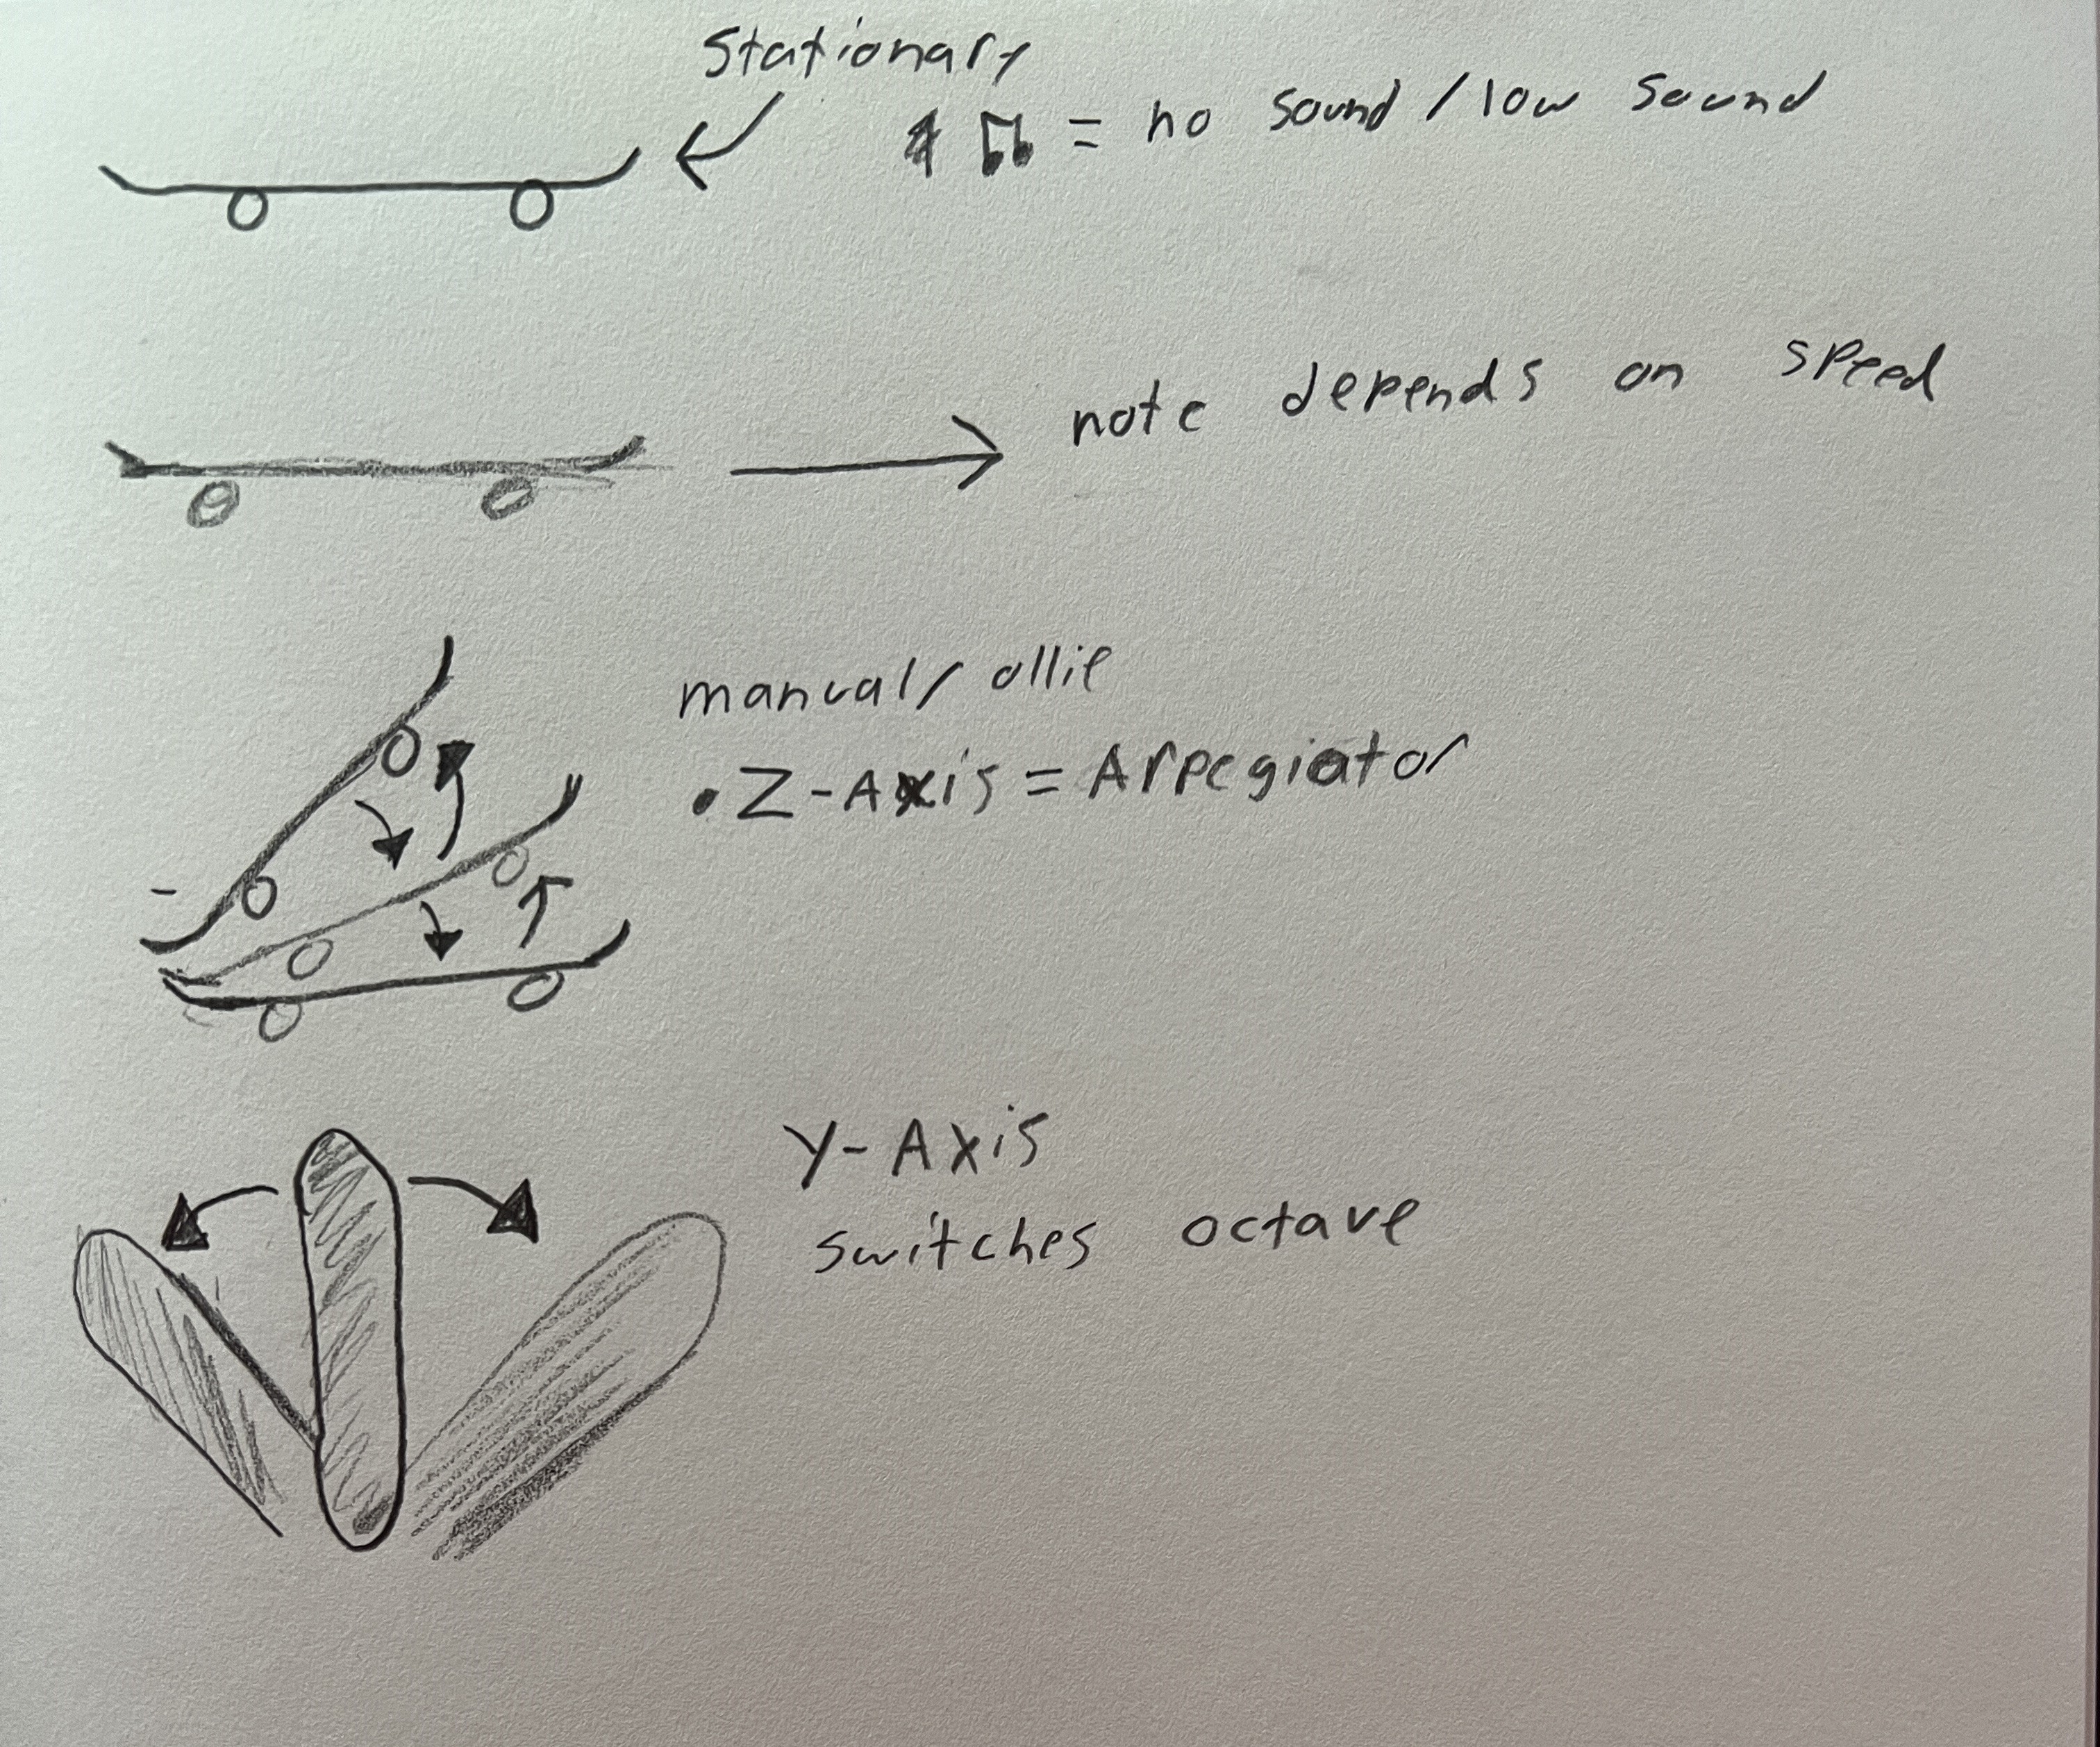 Stationary
= no sound / low sound
note depends on speed
manual/ ollie
• Z-Axis = Arpegiator
Y-Axis
switches octave